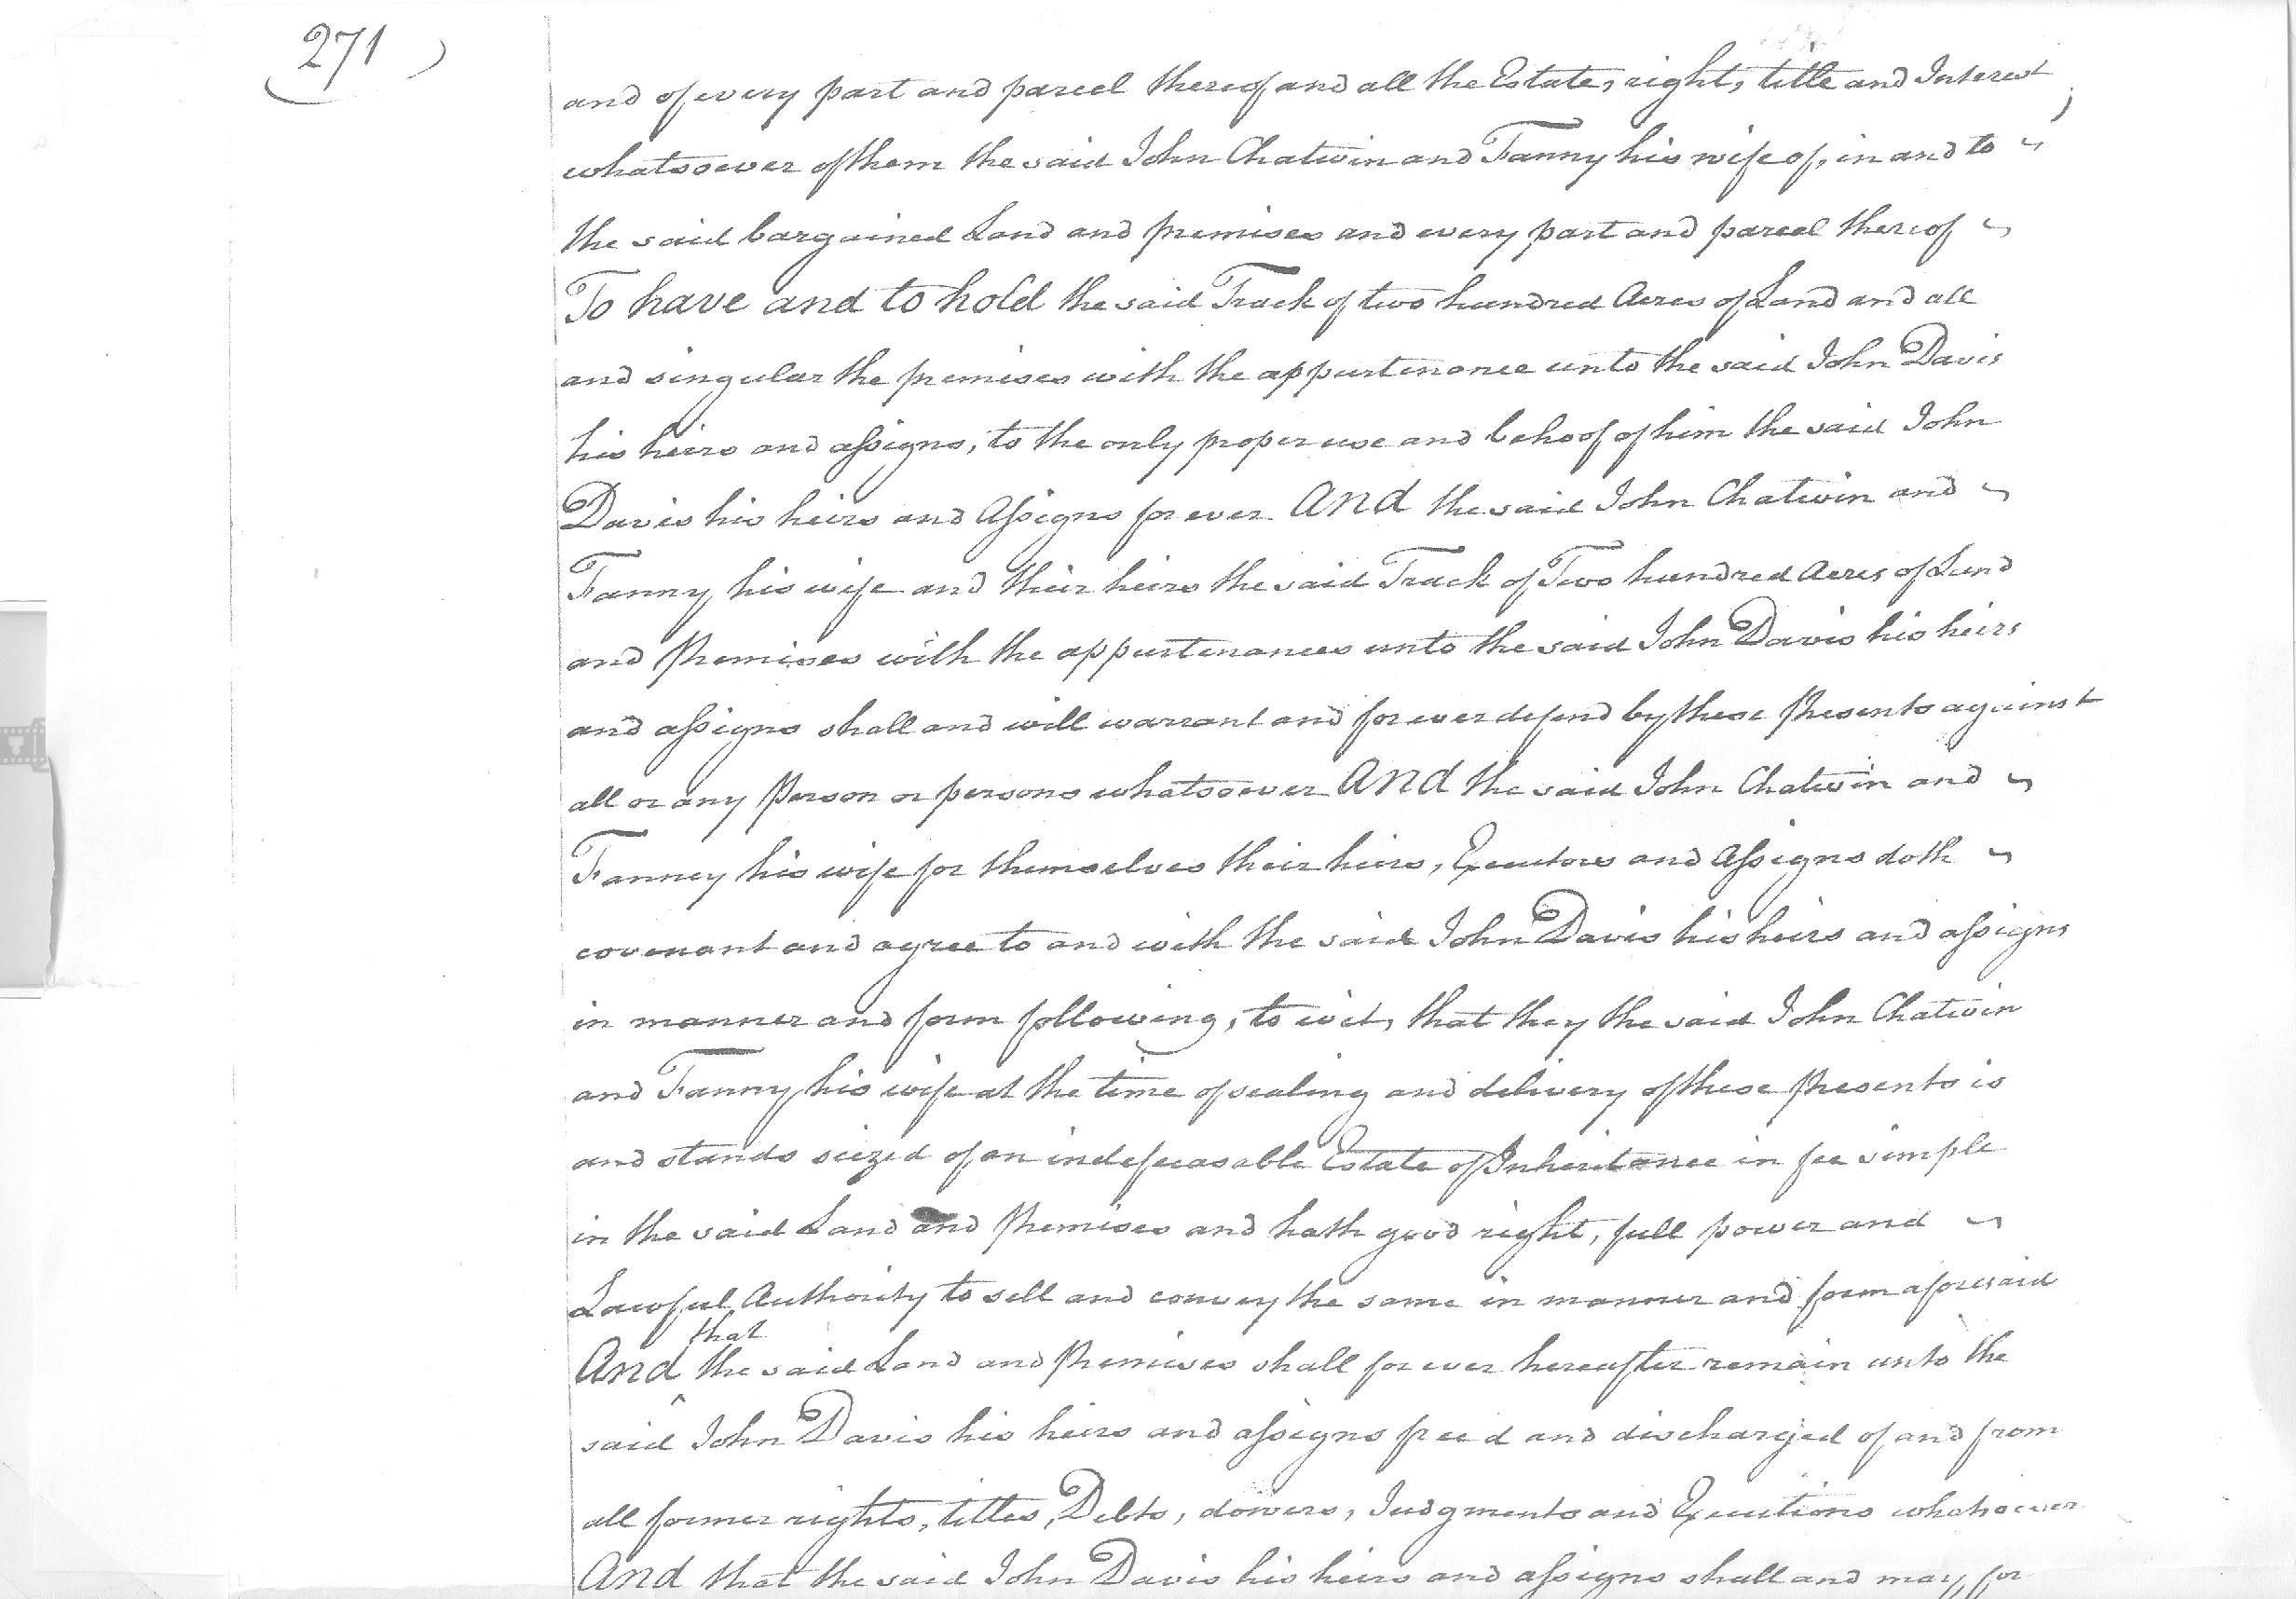 271
and of every part and parcel thereof and all the Estate, right, title and Interest
whatsoever of them the said John Chatwin and Fanny his wife of, in and to
the said bargained Land and premises and every part and parcel thereof
To have and to hold the said Track of two hundred Acres of Land and all
and singular the premises with the appurtenance unto the said John Davis
his heirs and assigns, to the only proper use and behoof of him the said John
Davis his heirs and Assigns for ever And the said John Chatwin and
Fanny his wife and their heirs the said Track of Two hundred Acres of Land
and Premises with the appurtenances unto the said John Davis his heirs
and assigns shall and will warrant and for ever defend by these Presents against
all or any Person or persons whatsoever And the said John Chatwin and
Fanney his wife for themselves their heirs, Executors and Assigns doth
covenant and agree to and with the said John Davis his heirs and assigns
in manner and form following, to wit, that they the said John Chatwin
and Fanny his wife at the time of sealing and delivery of these Presents is
and stands seized of an indefeasable Estate of Inheritance in fee simple
in the said Land and Premises and hath good right, full power and
Lawful Authority to sell and convey the same in manner and form aforesaid
And that the said Land and Premises shall for ever hereafter remain unto the
said John Davis his heirs and assigns freed and discharged of and from
all former rights, titles, Debts, dowers, Judgments and Executions whatsoever
And that the said John Davis his heirs and assigns shall and may, for